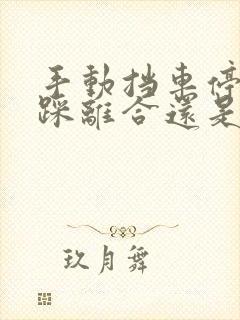 手動挡車停
踩離合還是
玖月舞